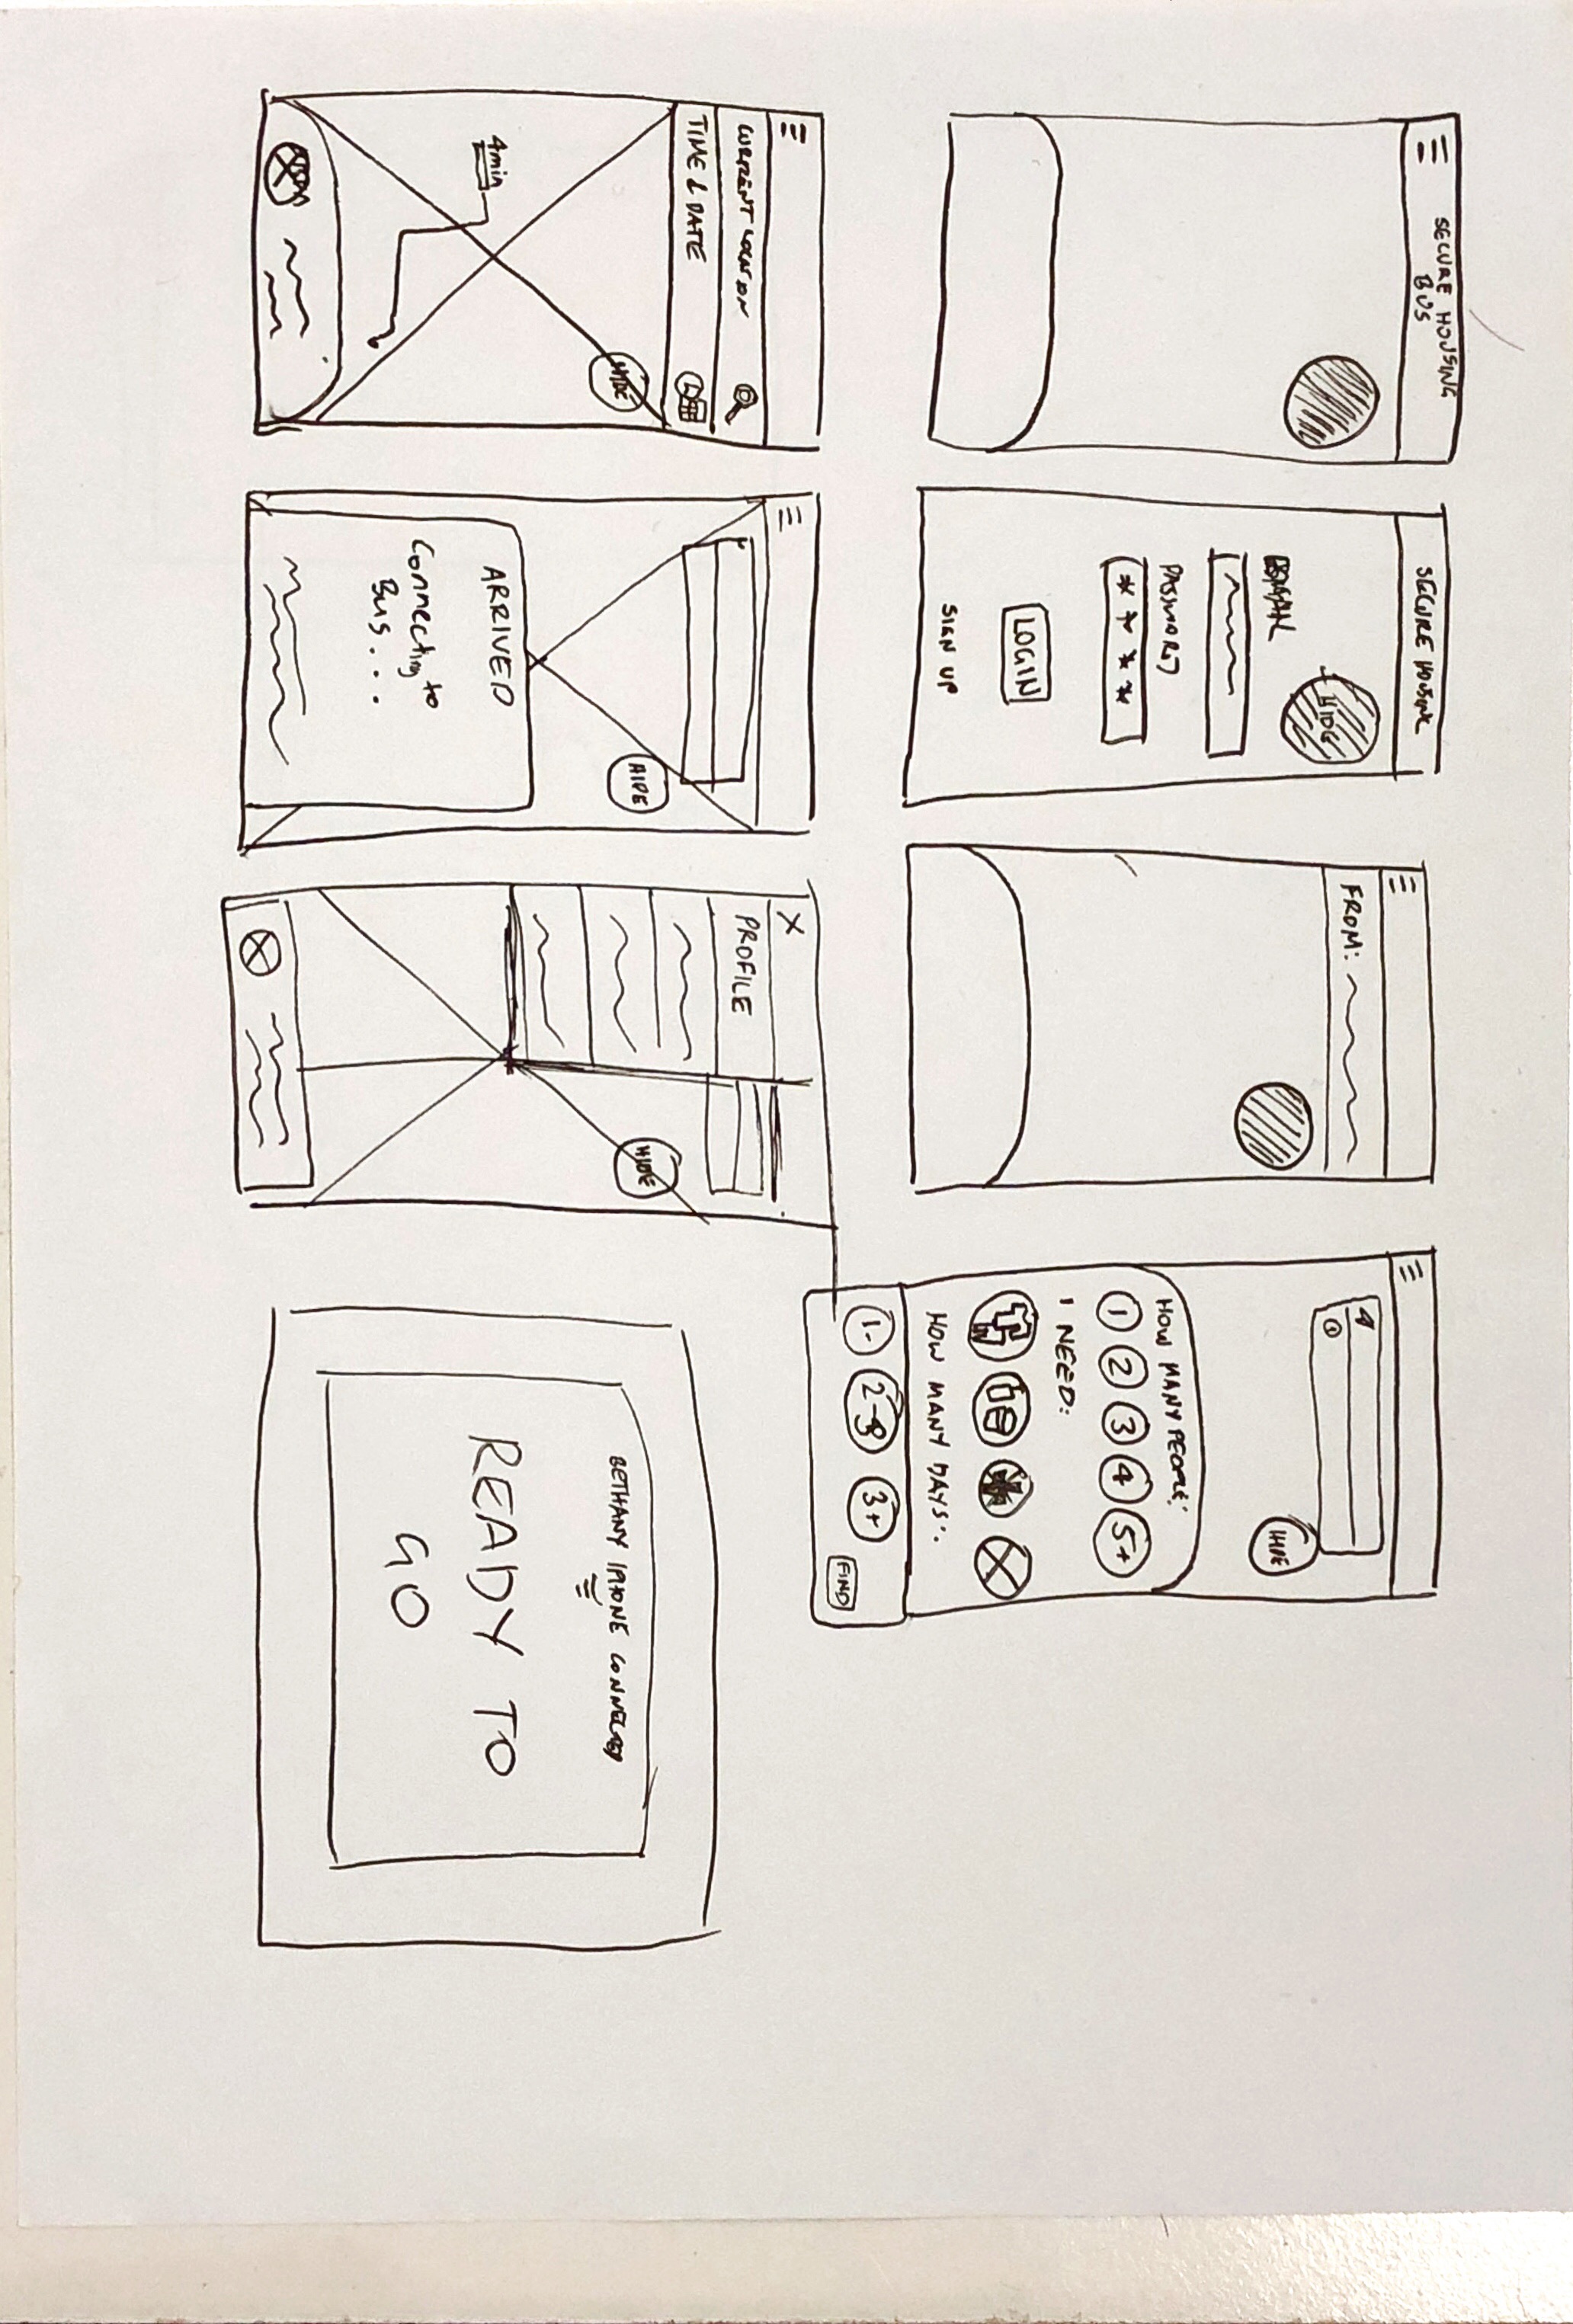 SECURE HOUSING
BUS
SECURE HOUSING
HIDE
PASSWORD
****
LOGIN
SIGN UP
FROM:
HIDE
HOW MANY PEOPLE:
1 2 3 4 5+
I NEED:
HOW MANY DAYS:
1- 3+
FIND
CURRENT LOCATION
TIME & DATE
HIDE
4min
HIDE
ARRIVED
Connecting to
Bus...
X
PROFILE
HIDE
BETHANY IPHONE CONNECTED
READY TO
GO